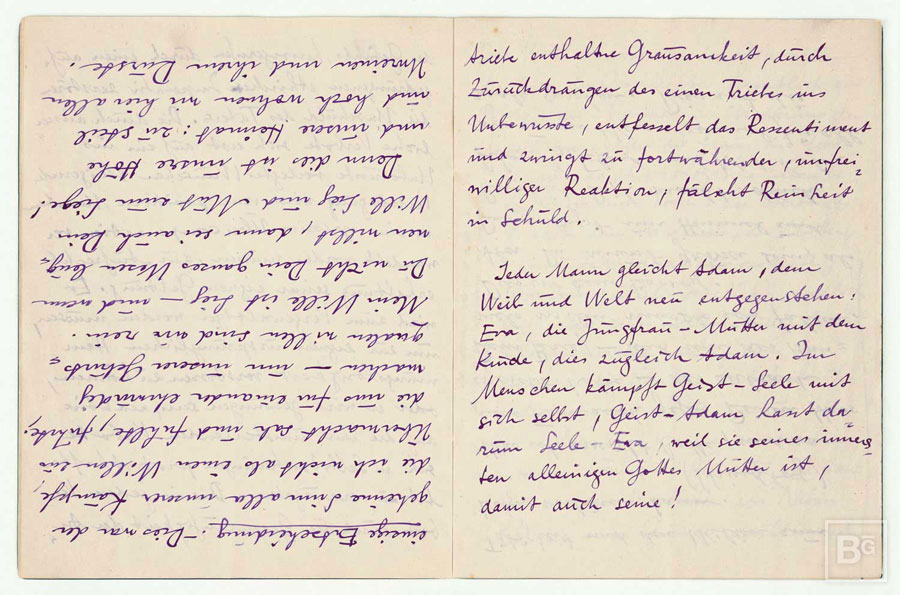 einzige Entscheidung. – Dies war der
geheime Sinn aller unserer Kämpfe,
die ich nicht als einen Willen zur
Übermacht sah und fühlte, führte;
die uns für einander ehrwürdig
machen – um unserer Geburts=
qualen willen sind wir rein.
Mein Wille ist Sieg – und wenn
Du nicht Dein ganzes Wesen leug=
nen willst, dann sei auch Dein
Wille Sieg und Mut zum Siege!
Denn dies ist unsre Höhe
und unsre Heimat: zu steil
und hoch wohnen wir hier allen
Unreinen und ihrem Durste.
triebe enthaltne Grausamkeit, durch
Zurückdrängen des einen Triebes ins
Unbewusste, entfesselt das Ressentiment
und zwingt zu fortwährender, unfrei=
williger Reaktion; fälscht Reinheit
in Schuld.
Jeder Mann gleicht Adam, dem
Weib und Welt neu entgegenstehen:
Eva, die Jungfrau-Mutter mit dem
Kinde, dies zugleich Adam. Im
Menschen kämpft Geist-Seele mit
sich selbst, Geist-Adam hasst da
rum Seele-Eva, weil sie seines inners
ten alleinigen Gottes Mutter ist,
damit auch seine!
BG